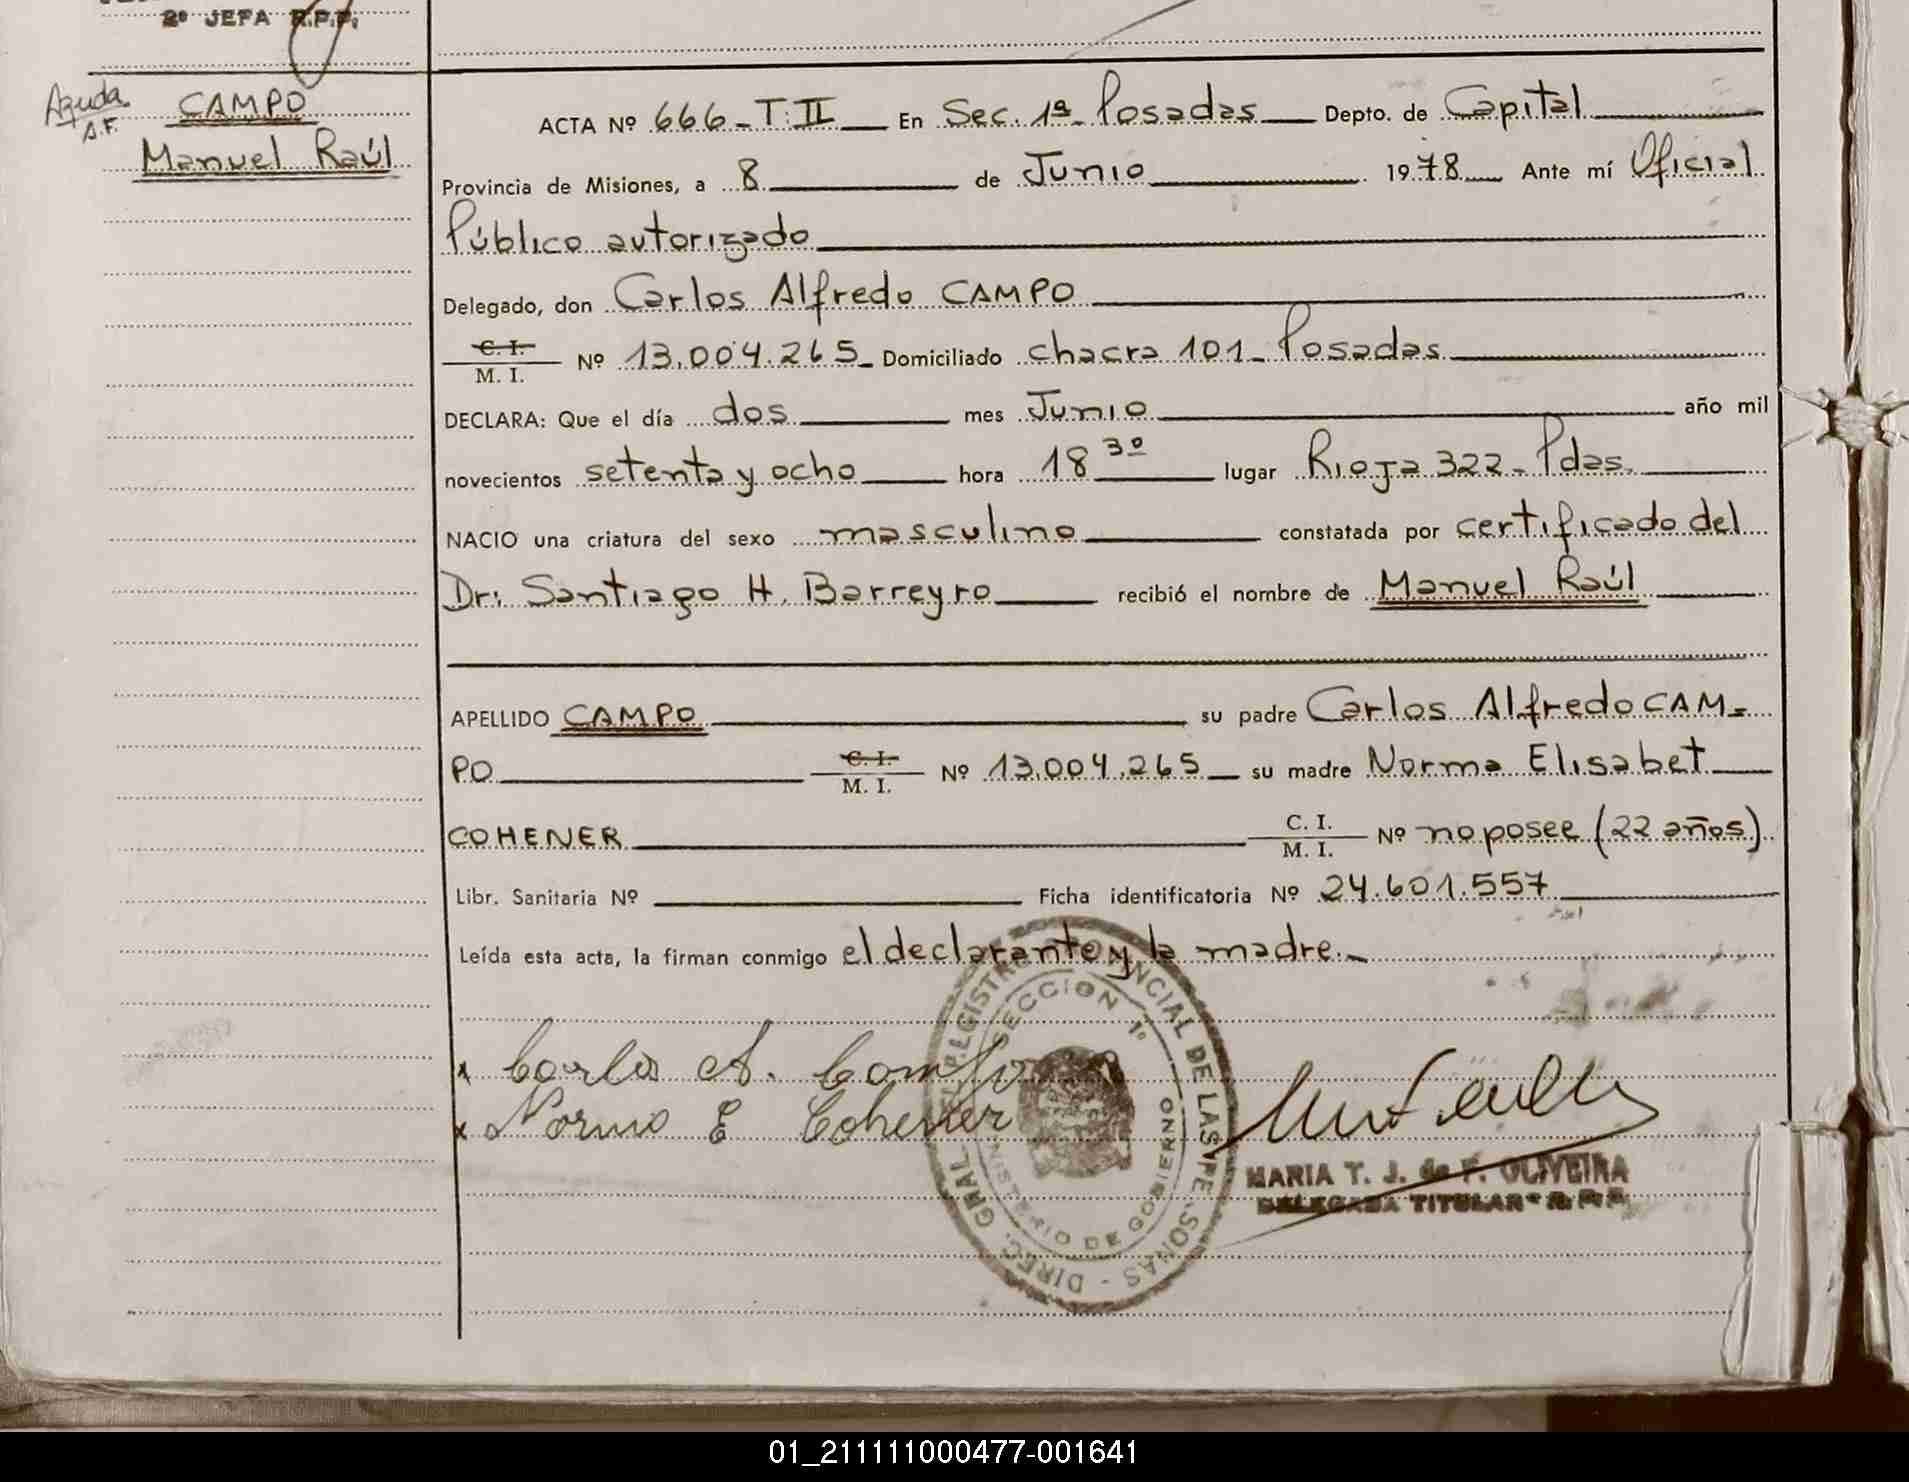 2º JEFA R.P.P.
Ayuda
A.F.
CAMPO
Manuel Raúl
ACTA Nº 666_T.II En Sec. 1ª Posadas Depto. de Capital
Provincia de Misiones, a 8 de Junio 1978 Ante mí Oficial
Público autorizado
Delegado, don Carlos Alfredo CAMPO
C. I.
M. I. Nº 13.004.265 Domiciliado chacra 101_ Posadas
DECLARA: Que el día dos mes Junio año mil
novecientos setenta y ocho hora 18 30 lugar Rioja 322_ Pdas.
NACIO una criatura del sexo masculino constatada por certificado del
Dr: Santiago H. Barreyro recibió el nombre de Manuel Raúl
APELLIDO CAMPO su padre Carlos Alfredo CAM=
PO C. I. M. I. Nº 13.004.265 su madre Norma Elisabet
COHENER C. I. M. I. Nº no posee (22 años)
Libr. Sanitaria Nº Ficha identificatoria Nº 24.601.557
Leída esta acta, la firman conmigo el declarante y la madre._
x Carlos A. Campo
x Norma E Cohener
DIREC. GRAL. REGISTRO PROVINCIAL DE LAS PERSONAS -
SECCION 1º
MINISTERIO DE GOBIERNO
MARIA T. J. de F. OLIVEIRA
DELEGADA TITULAR R.P.P.
01_211111000477-001641